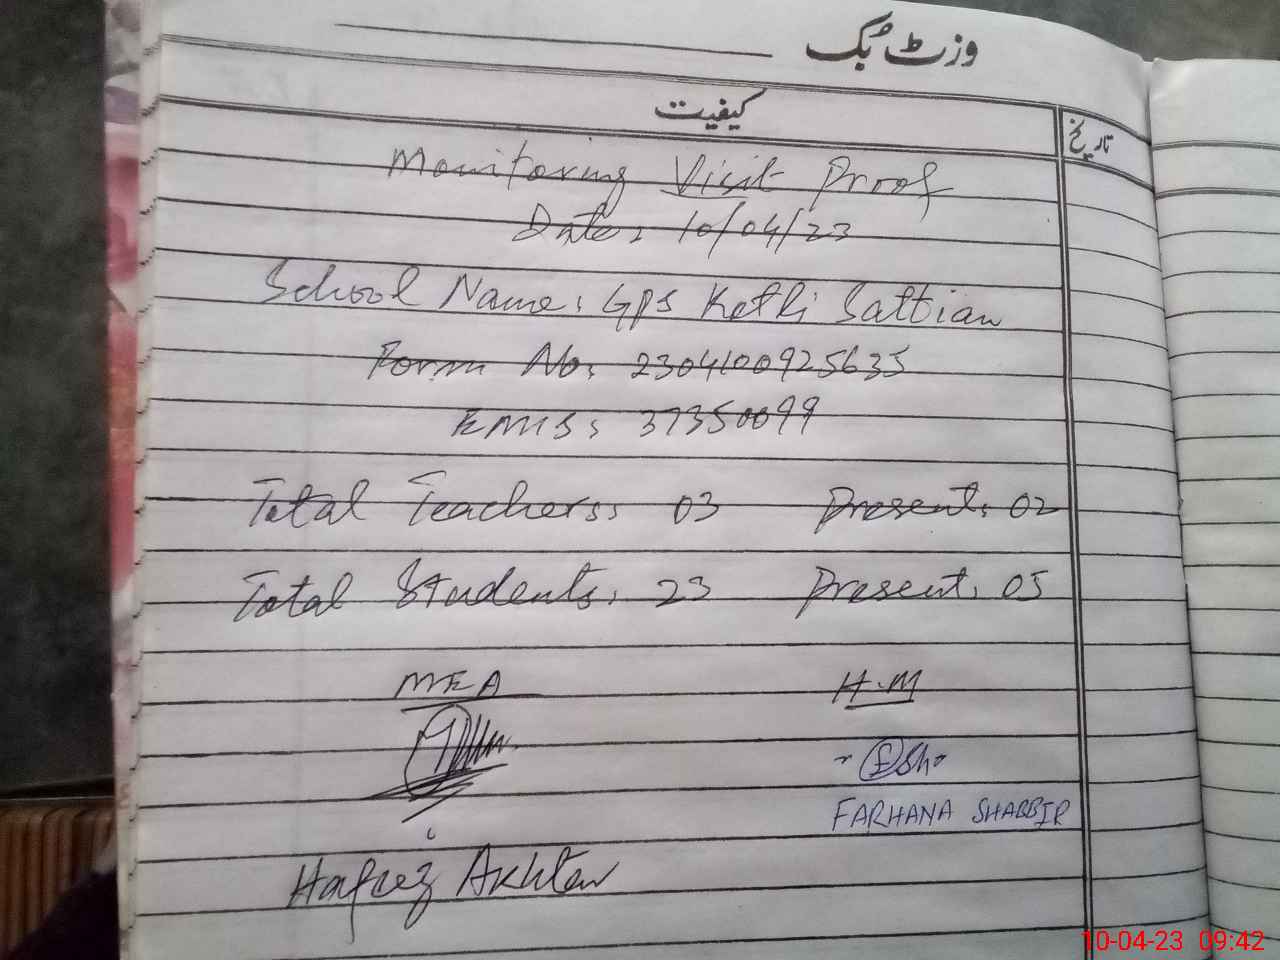 وزٹ بک
کیفیت
تاریخ
Monitoring Visit Proof
Date: 10/04/23
School Name: GPS Kotli Sattian
Form No: 2304100925635
EMIS: 37350099
Total Teachers: 03 Present: 02
Total Students: 23 Present: 05
MEA H.M
FARHANA SHABBIR
Hafeez Akhtar
10-04-23 09:42